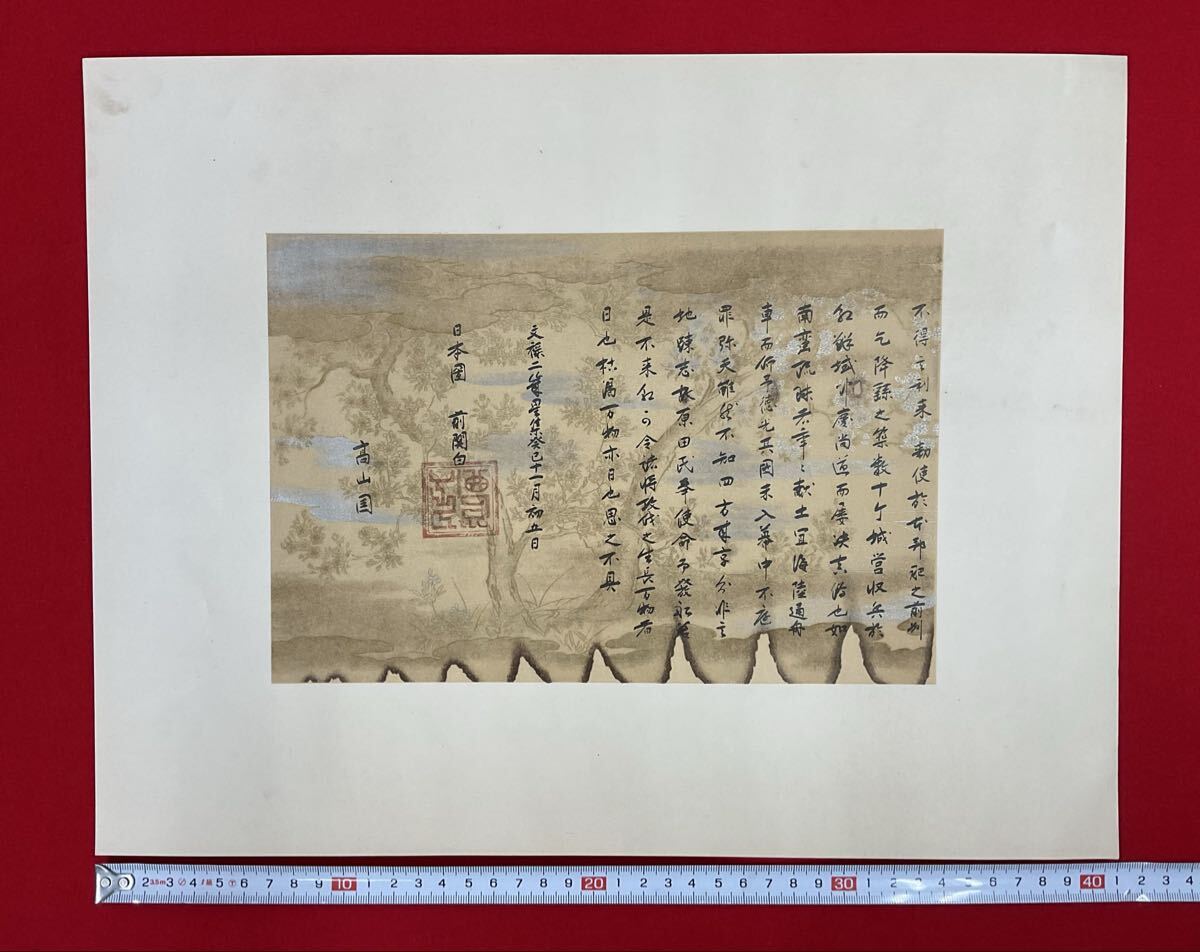 不得其利来 勅使於本邦祀之前却
而乞降繇之築数十ケ城営収兵於
朝鮮域中慶尚道而屡決真偽也如
南蛮琉球者年々献土宜海陸通舟
車而仰予徳光其国未入幕中不庭
罪弥天雖然不知四方来享分非其
地疎志故原田氏奉使命而発船若
是不来朝可令諸将攻伐之生長万物者
日也枯渇万物亦日也思之不具
文禄二歳星集癸巳十一月初五日
日本国 前関白
高山国
2 3.5m 3 4 5 6 7 8 9 10 1 2 3 4 5 6 7 8 9 20 1 2 3 4 5 6 7 8 9 30 1 2 3 4 5 6 7 8 9 40 1 2 3 4